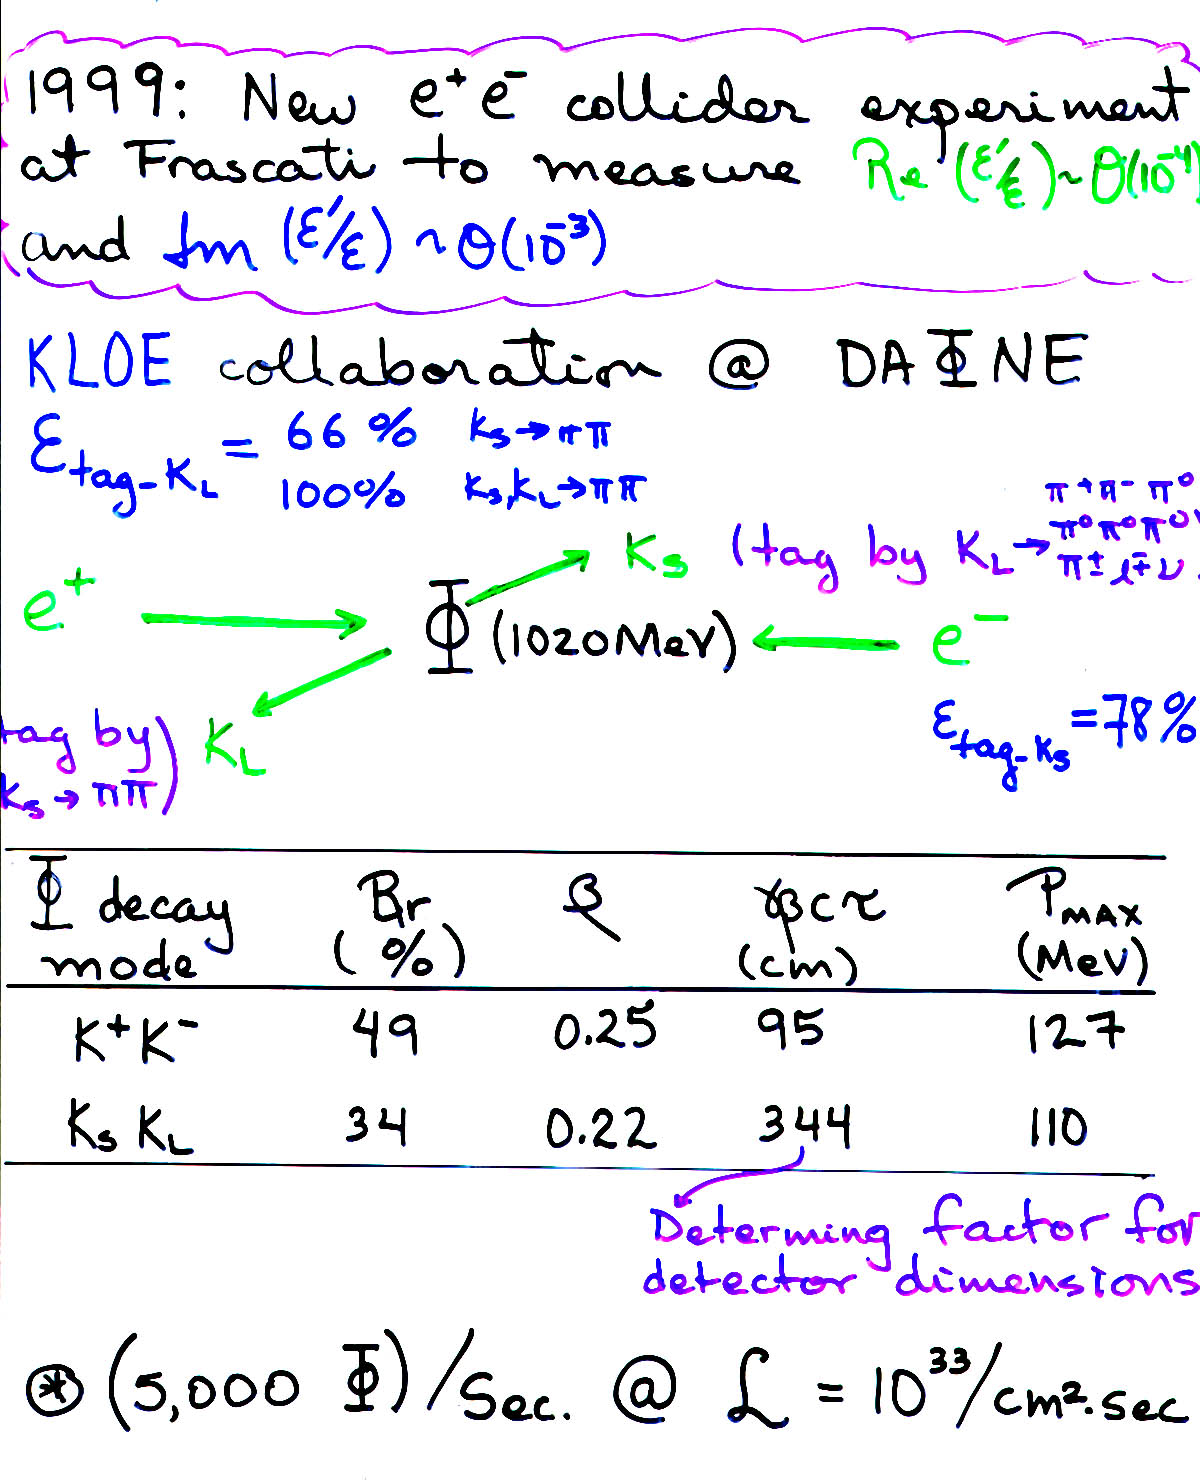 1999: New e⁺e⁻ collider experiment
at Frascati to measure Re (ε'/ε) ~ O(10⁻⁴)
and Im (ε'/ε) ~ O(10⁻³)
KLOE collaboration @ DAΦNE
ε_tag-K_L = 66 % K_S → ππ
100% K_S, K_L → ππ
π⁺π⁻π⁰
π⁰π⁰π⁰
K_S (tag by K_L → π± l∓ ν
e⁺ → Φ (1020 MeV) ← e⁻
ε_tag-K_S = 78%
tag by) K_L
K_S → ππ
Φ decay mode Br (%) β γβcτ (cm) P_MAX (MeV)
K⁺K⁻ 49 0.25 95 127
K_S K_L 34 0.22 344 110
Determing factor for
detector dimensions
⊛ (5,000 Φ)/Sec. @ ℒ = 10³³/cm².sec